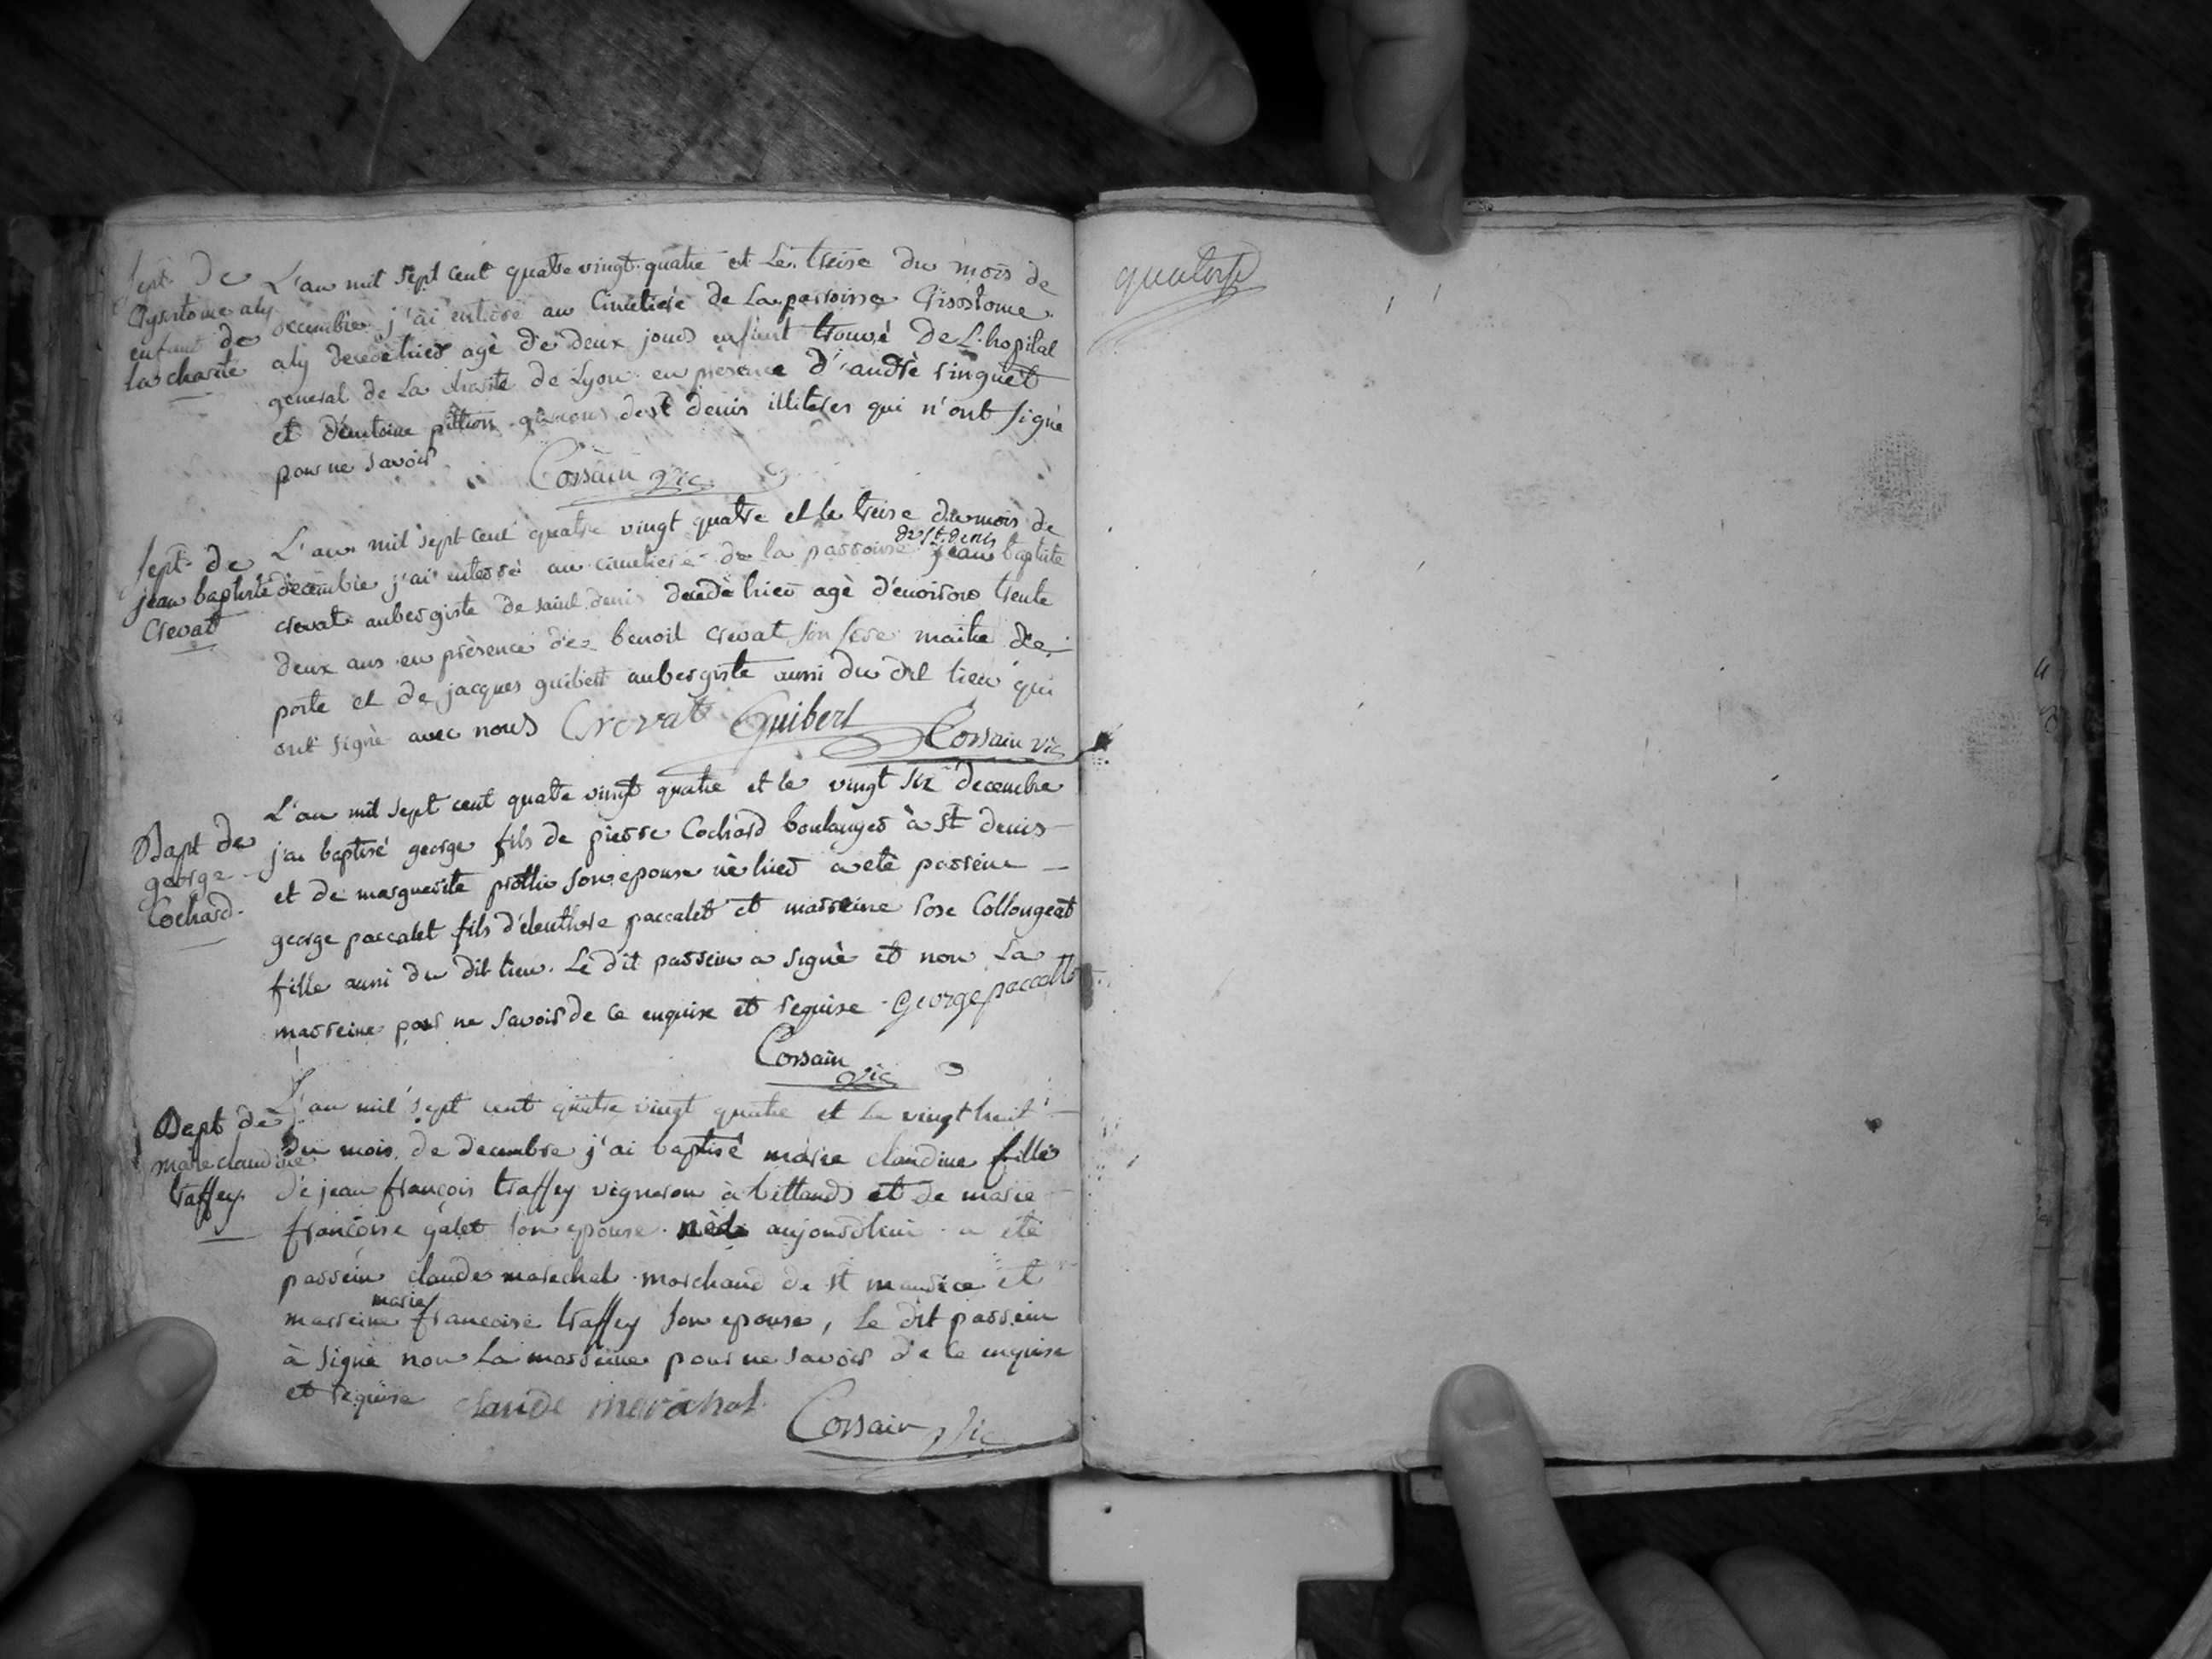 Sept. de
Crysostome aly
enfant de
la charité
L'an mil sept cent quatre vingt quatre et Le treise du mois de
decembre j'ai enterré au Cimetiere de La parroisse Crisostome
aly decedé hier agè de deux jours enfant trouvé de L'hopital
general de La charité de Lyon en presence d'andrè ringuet
et d'entoine pittion vignerons de st denis illiteres qui n'ont signè
pour ne savoir
Corsain vic.
Sept. de
jean baptiste
Crevat
L'an mil sept cent quatre vingt quatre et le treise du mois de
de st. denis
decembre j'ai enterré au cimetiere de la parroisse jean baptiste
crevat aubergiste de saint denis decedè hier agè d'environ trente
deux ans en prèsence de benoit crevat son frere maitre de
poste et de jacques guibert aubergiste aussi du dit lieu qui
ont signè avec nous Crevat Guibert
Corsain vic
Bapt de
george
Cochard.
L'an mil sept cent quatre vingt quatre et le vingt six decembre
j'ai baptisé george fils de pierre Cochard boulanger à st denis
et de marguerite prottin son epouse nè hier a etè parrein
george paccalet fils d'eleuthere paccalet et marreine rose Collongeat
fille aussi du dit lieu. Le dit parrein a signè et non La
marreine pour ne savoir de ce enquise et requise. George paccallet
Corsain
vic
Bapt de
marie claudine
traffey
L'an mil sept cent quatre vingt quatre et le vingt huit
du mois de decembre j'ai baptisé marie claudine fille
de jean françois traffey vigneron à bittands et de marie
françoise galet son epouse née aujourdhui a etè
parrein claude marechal marchand de st maurice et
marie
marreine françoise traffey son epouse, Le dit parrein
à signè non La marreine pour ne savoir de ce enquise
et requise claude marachal
Corsain Vic
quatorse